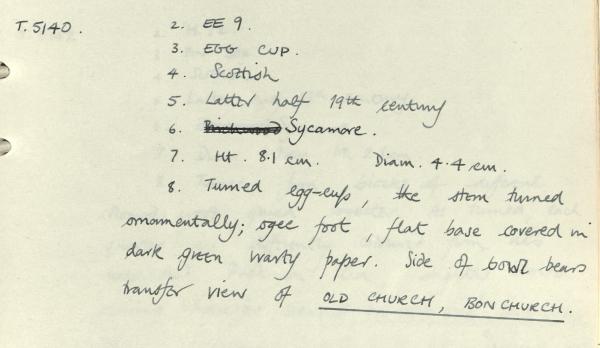 T.5140. 2. EE 9.
3. EGG CUP.
4. Scottish
5. Latter half 19th century
6. Birchwood Sycamore.
7. Ht. 8.1 cm. Diam. 4.4 cm.
8. Turned egg-cup, the stem turned
ornamentally; ogee foot, flat base covered in
dark green warty paper. Side of bowl bears
transfer view of OLD CHURCH, BONCHURCH.